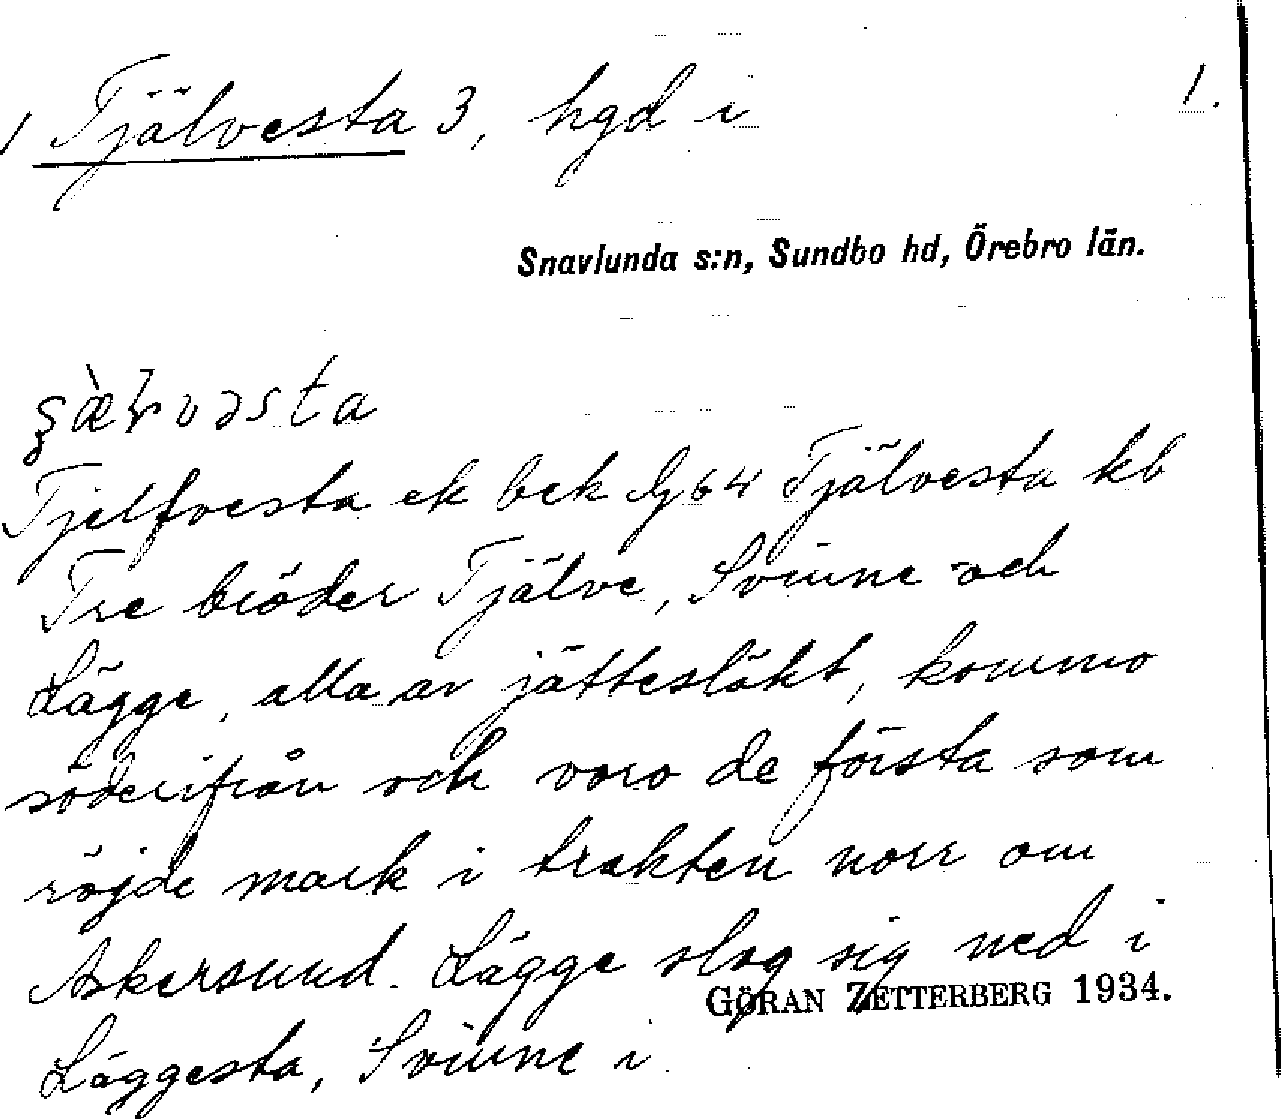 Tjälvesta 3, hgd i 1.
Snavlunda s:n, Sundbo hd, Örebro län.
Tjelfvesta ek bek Tjälvesta kb
Tre bröder Tjälve, Svinne och
Lägge, alla av jättesläkt, kommo
söderifrån och voro de första som
röjde mark i trakten norr om
Askersund. Lägge slog sig ned i
GÖRAN ZETTERBERG 1934.
Läggesta, Svinne i